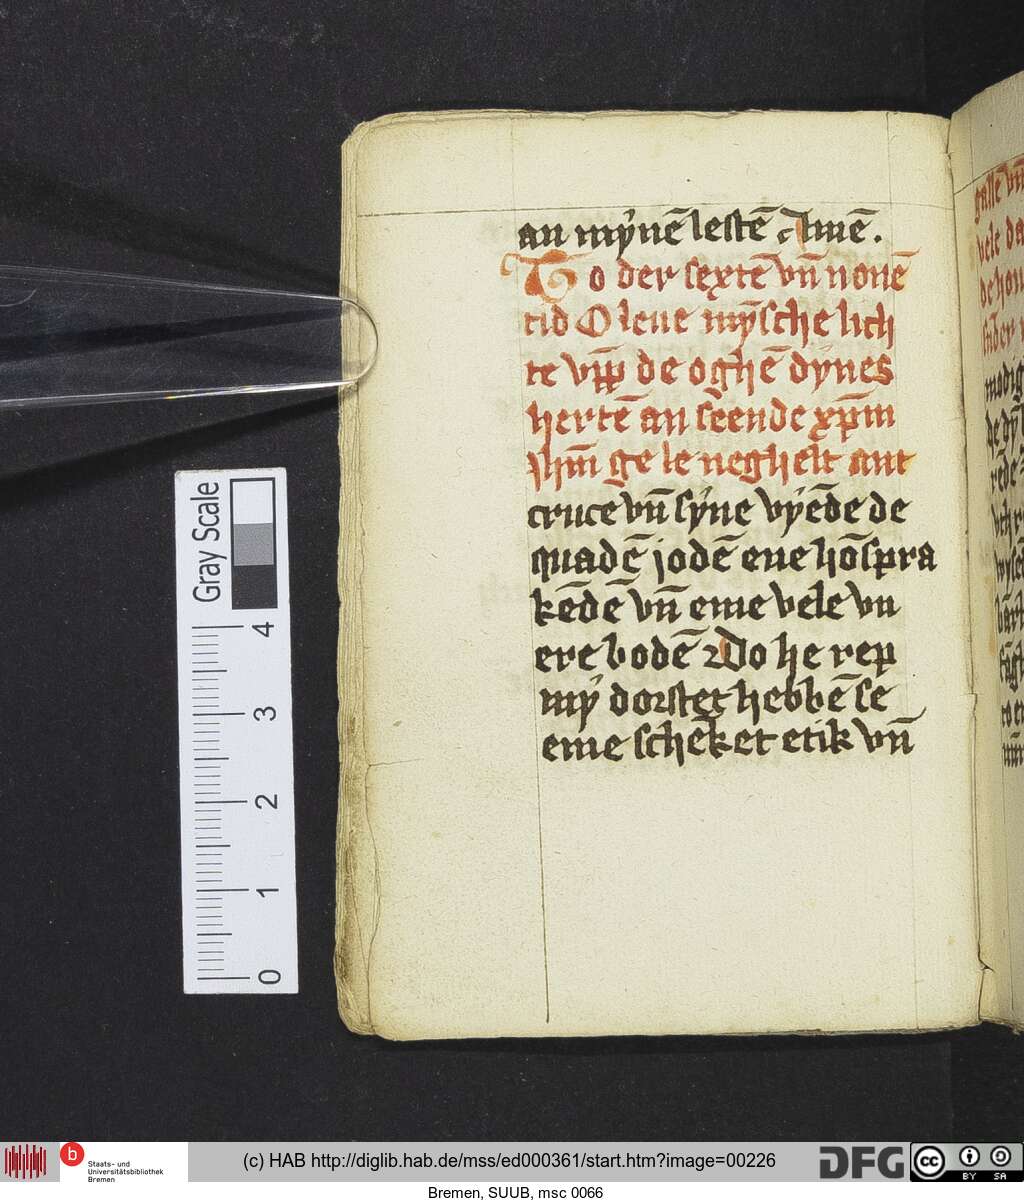 an mẏnē lestē Amē.
To der sextē vn̄ nonē
tid O leue mȳsche lich
te vp̄p de oghē dẏnes
hertē an sēende xp̄m
ihm̄ ge le neghelt ant
cruce vn̄ sẏne vẏēde de
quadē jodē eue hōspra
kēdē vn̄ eme vele vn
ere bodē Do he rep
mẏ dorstet hebbē se
eme schēket etik vn̄
galle vn̄
vele da
Gray Scale
4
3
2
1
0
b
Staats- und
Universitätsbibliothek
Bremen
(c) HAB http://diglib.hab.de/mss/ed000361/start.htm?image=00226
DFG
cc
BY SA
Bremen, SUUB, msc 0066